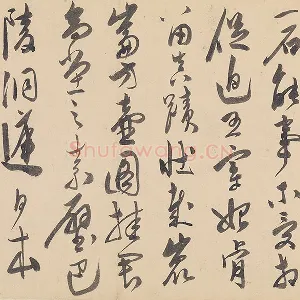 一石能事不受相
促迫王宰始肯
留真蹟壯哉崑
崙方壺圖挂君
高堂之素壁巴
陵洞庭日本
Shufawang.CN